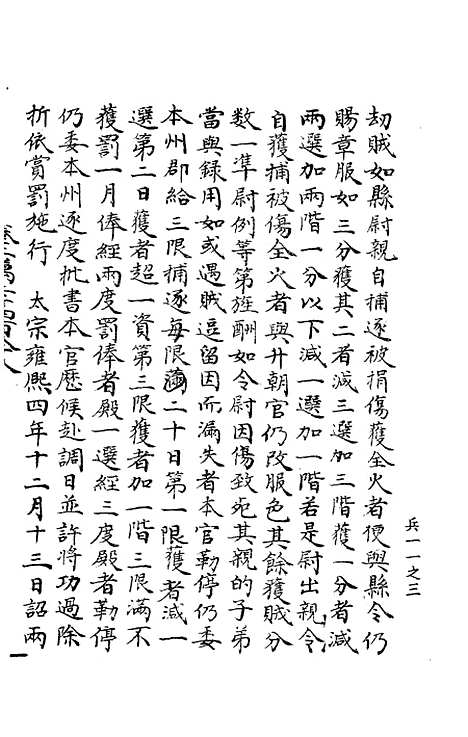 兵一一之三
刼賊如縣尉親自捕逐被捐傷獲全火者便與縣令仍
賜章服如三分獲其二者减三選加三階獲一分者减
兩選加兩階一分以下减一選加一階若是尉出親令
自獲捕被傷全火者與升朝官仍改服色其餘獲賊分
数一凖尉例等第旌酬如令尉因傷致死其親的子弟
當與録用如或遇賊逗留因而漏失者本官勒停仍委
本州郡給三限捕逐每限二十日第一限獲者减一
選第二日獲者超一資第三限獲者加一階三限滿不
獲罰一月俸經兩度罰俸者殿一選經三度殿者勒停
仍委本州逐度批書本官歷候赴調日並許將功過除
折依賞罰施行 太宗雍熙四年十二月十三日詔兩